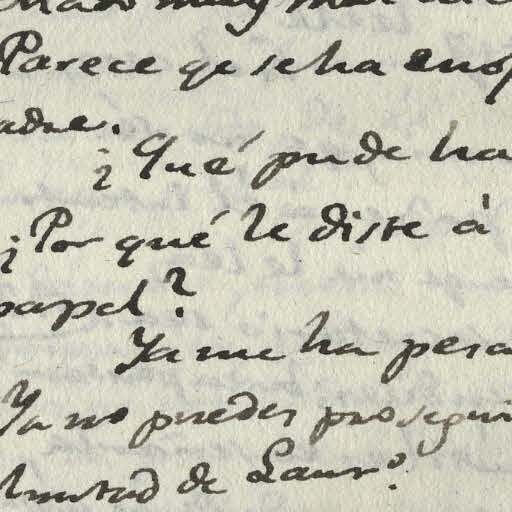 Parece qe se ha eno
adre.
¿Qué pude ha
¿Por qué le diste à
papel?
Ya me ha pesa
Ya no puedes prosegui
de Laurº